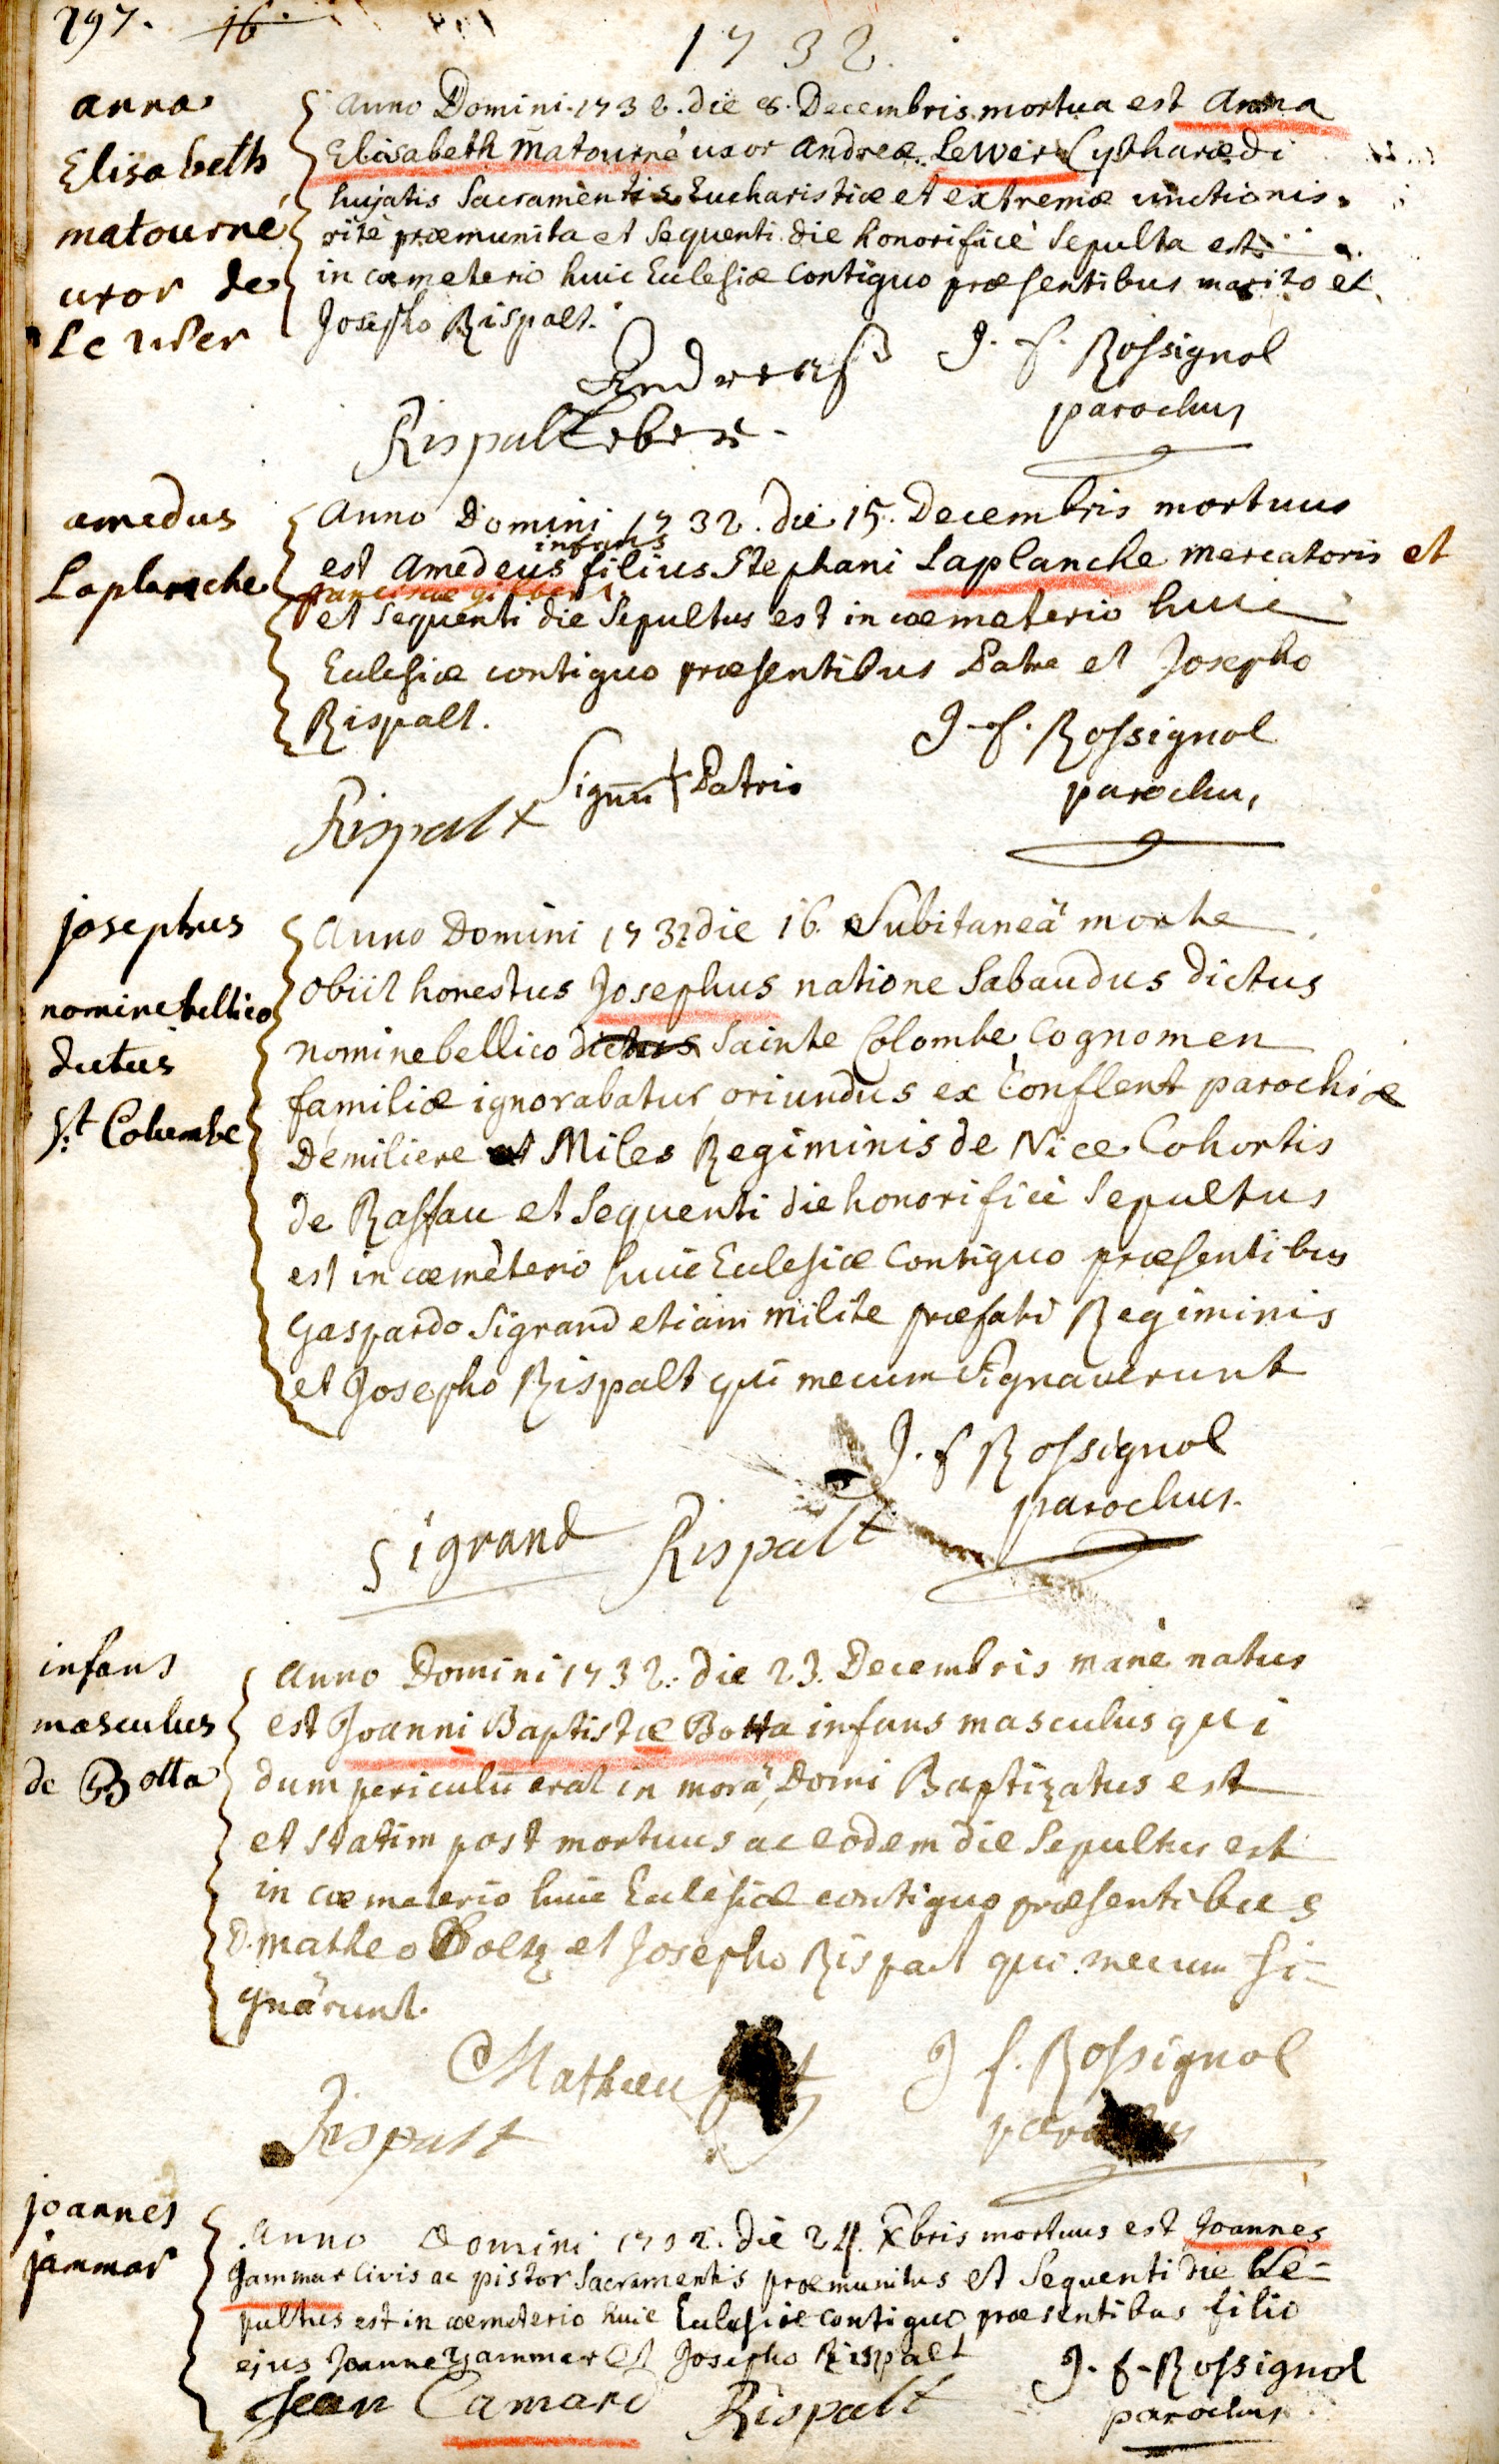 197. 16
1732.
anna
Elisabeth
matourné
uxor de
Le wer
Anno Domini 1732. die 8. Decembris mortua est Anna
Elisabeth matourné uxor Andreæ Lewer Cytharædi
hujatis Sacramentis Eucharistiæ et extremæ unctionis
rite præmunita et Sequenti die honorificè Sepulta est
in cœmeterio huic Eclesiæ Contiguo præsentibus marito et
Josepho Rispalt.
J. f. Rossignol
parochus
Andreas
Rispalt Leber
amedus
Laplanche
Anno Domini 1732. die 15. Decembris mortuus
infans
est Amedeus filius Stephani Laplanche mercatoris et
franciscae
et Sequenti die Sepultus est in cœmeterio huic
Eclesiæ contiguo præsentibus Patre et Josepho
Rispalt.
J. f. Rossignol
parochus
Signũ + Patris
Rispalt
josephus
nominebellico
dictus
St Colombe
Anno Domini 1732 die 16. Subitaneâ morte
obiit honestus Josephus natione Sabaudus dictus
nominebellico dictus Sainte Colombe Cognomen
familiæ ignorabatur oriundus ex Conflent parochiæ
Demiliere et Miles Regiminis de Nice Cohortis
de Raffau et Sequenti die honorificè Sepultus
est in cœmeterio huic Eclesiæ Contiguo præsentibus
Gaspardo Sigrand etiam milite præfati Regiminis
et Josepho Rispalt qui mecum Signaverunt
J. f Rossignol
parochus.
Sigrand Rispalt
infans
masculus
de Botta
Anno Domini 1732. die 23. Decembris manè natus
est Joanni Baptistæ Botta infans masculus qui
dum periculũ erat in morâ, Domi Baptizatus est
et Statim post mortuus ac eodem die Sepultus est
in cœmeterio huic Eclesiæ contiguo præsentibus
D. matheo Soltz et Josepho Rispalt qui mecum Si-
gnârunt.
J f. Rossignol
parochus
Mathieu
Rispalt
joannes
jammar
Anno Domini 1732. die 24. Xbris mortuus est Joannes
Jammar Civis ac pistor Sacramentis præmunitus et Sequenti die Se-
pultus est in cœmeterio huic Eclesiæ contiguo præsentibus filio
ejus Joanne Yammer et Josepho Rispalt
J. f. Rossignol
parochus
Jean Camard Rispalt